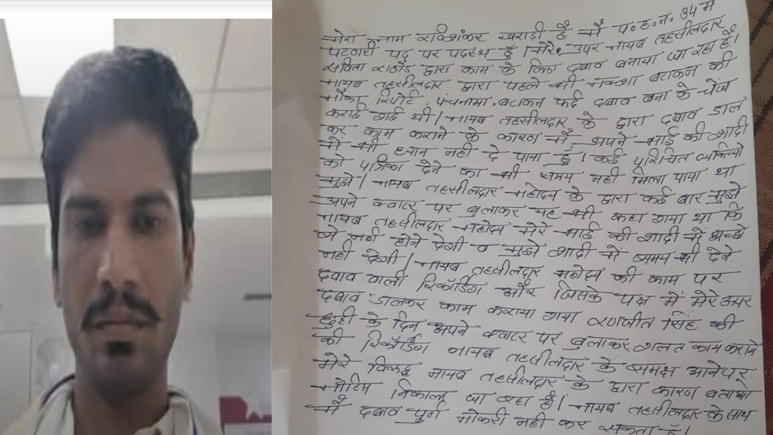 मेरा नाम रविशंकर खराडी है मैं प.ह.न. 34 में
पटवारी पद पर पदस्थ हूँ। मेरे ऊपर नायब तहसीलदार
सविता राठौड द्वारा काम के लिए दबाव बनाया जा रहा है।
नायब तहसीलदार द्वारा पहले भी नक्शा बटांकन की
मौका रिपोर्ट, पंचनामा, बटांकन फर्द दबाव बना के चेंज
कराई गई थी। नायब तहसीलदार के द्वारा दबाव डाल
कर काम कराने के कारण मैं अपने भाई की शादी
में भी ध्यान नहीं दे पाया हूँ। कई परिचित व्यक्तियो
को पत्रिका देने का भी समय नहीं मिला पाया था
मुझे। नायब तहसीलदार महोदय के द्वारा कई बार मुझे
अपने क्वाटर पर बुलाकर यह भी कहा गया था कि
नायब तहसीलदार महोदय मेरे भाई की शादी में अच्छे
से नहीं होने देगी व मुझे शादी में समय भी देने
नहीं देगी। नायब तहसीलदार महोदय की काम पर
दबाव वाली रिकॉर्डिंग और जिसके पक्ष में मेरे ऊपर
दबाव डालकर काम कराया गया रणजीत सिंह की
छुट्टी के दिन अपने क्वाटर पर बुलाकर गलत काम कराने
की रिकॉर्डिंग नायब तहसीलदार के समक्ष आने पर
मेरे विरूद्ध नायब तहसीलदार के द्वारा कारण बताओ
नोटिस निकाला जा रहा है। नायब तहसीलदार के साथ
मैं दबाव पूर्ण नौकरी नहीं कर सकता हूँ।